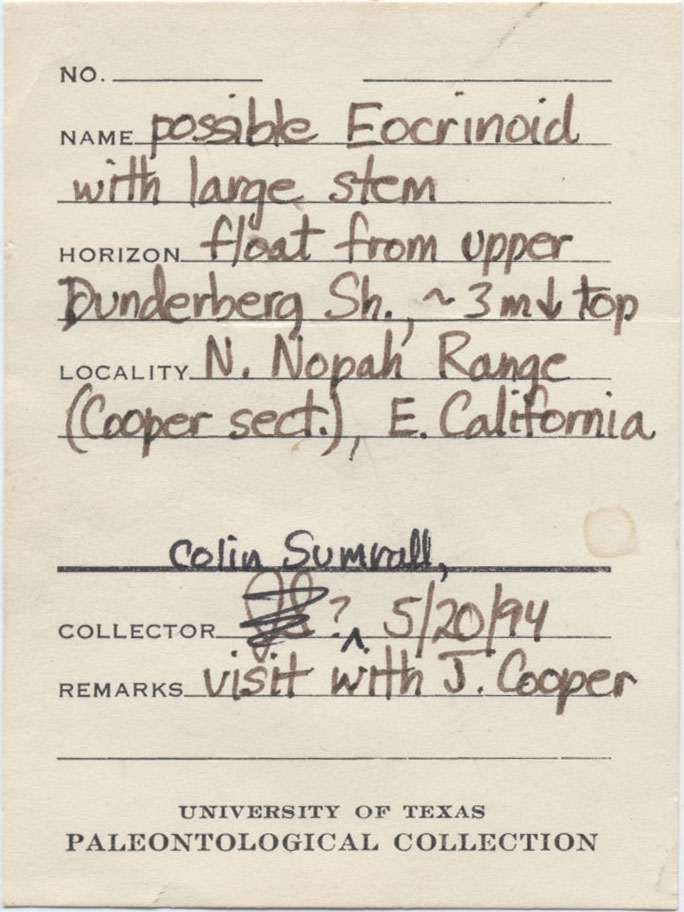 NO.
NAME possible Eocrinoid
with large stem
HORIZON float from upper
Dunderberg Sh., ~3m↓ top
LOCALITY N. Nopah Range
(Cooper sect.), E. California
Colin Sumrall,
COLLECTOR ? ^ 5/20/94
REMARKS visit with J. Cooper
UNIVERSITY OF TEXAS
PALEONTOLOGICAL COLLECTION